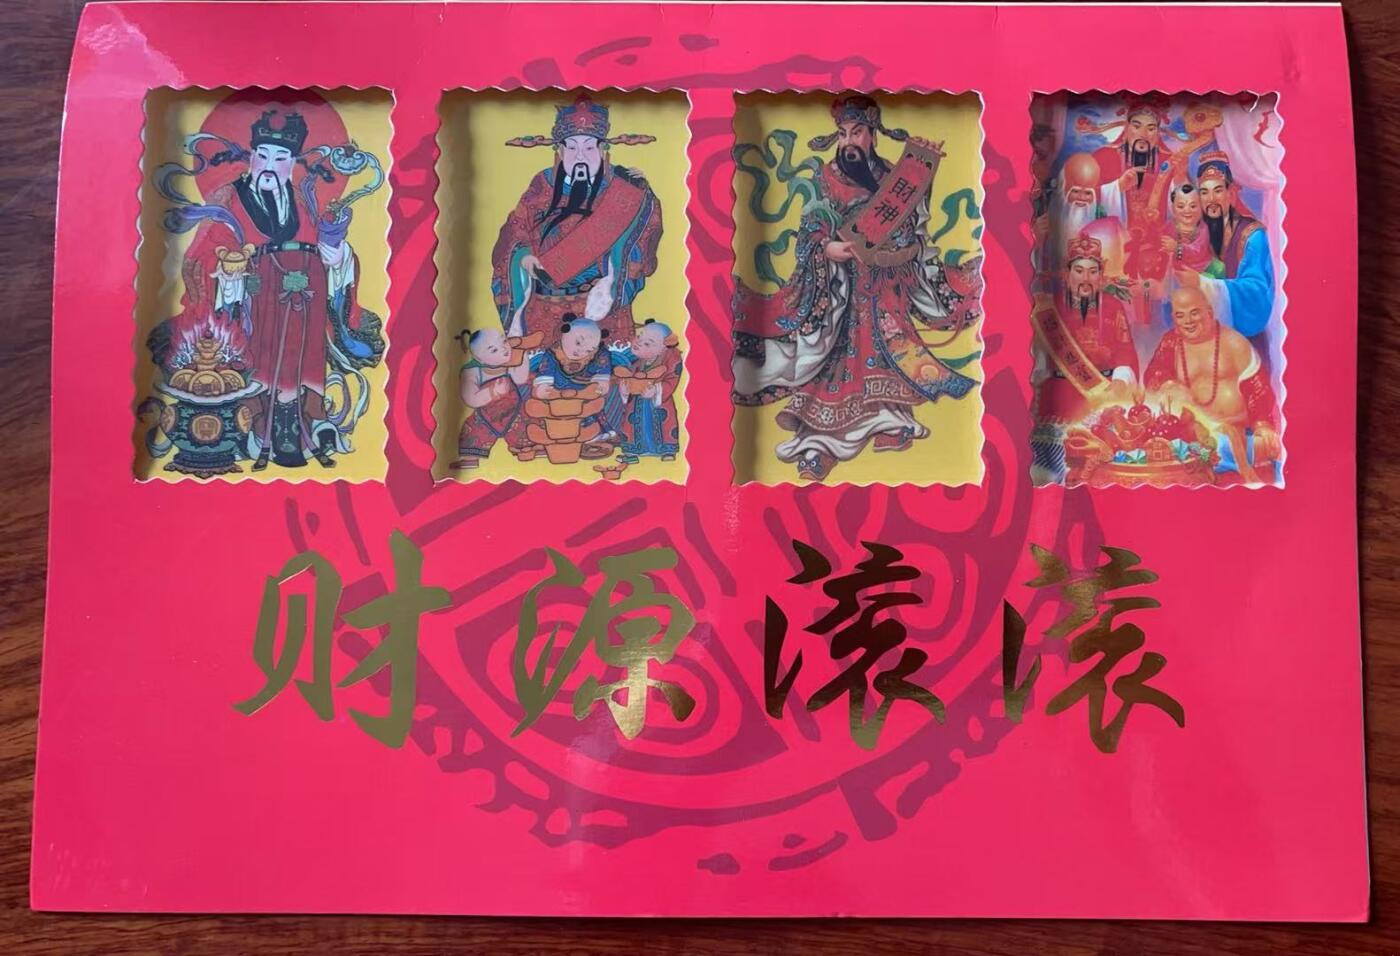 財神
财源滚滚